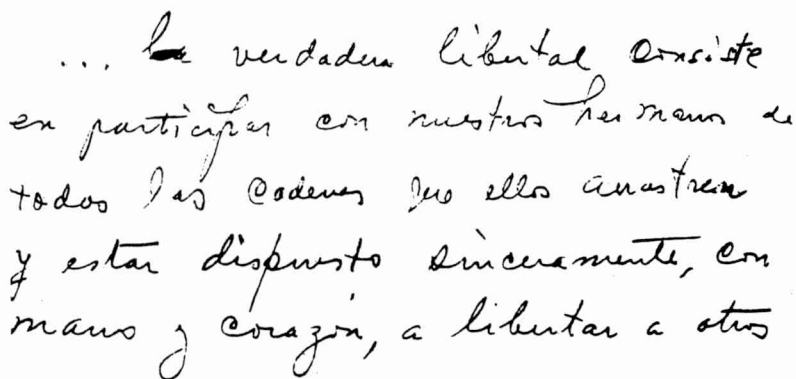 ... la verdadera libertad consiste
en participar con nuestros hermanos de
todas las cadenas que ellos arrastran
y estar dispuesto sinceramente, con
mano y corazón, a libertar a otros